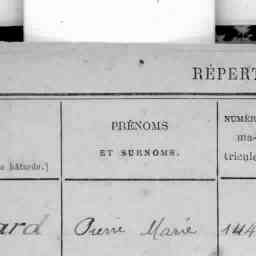 RÉPERT
PRÉNOMS
ET SURNOMS.
NUMÉR
ma-
tricule
bâtarde.)
ard
Pierre Marie
144